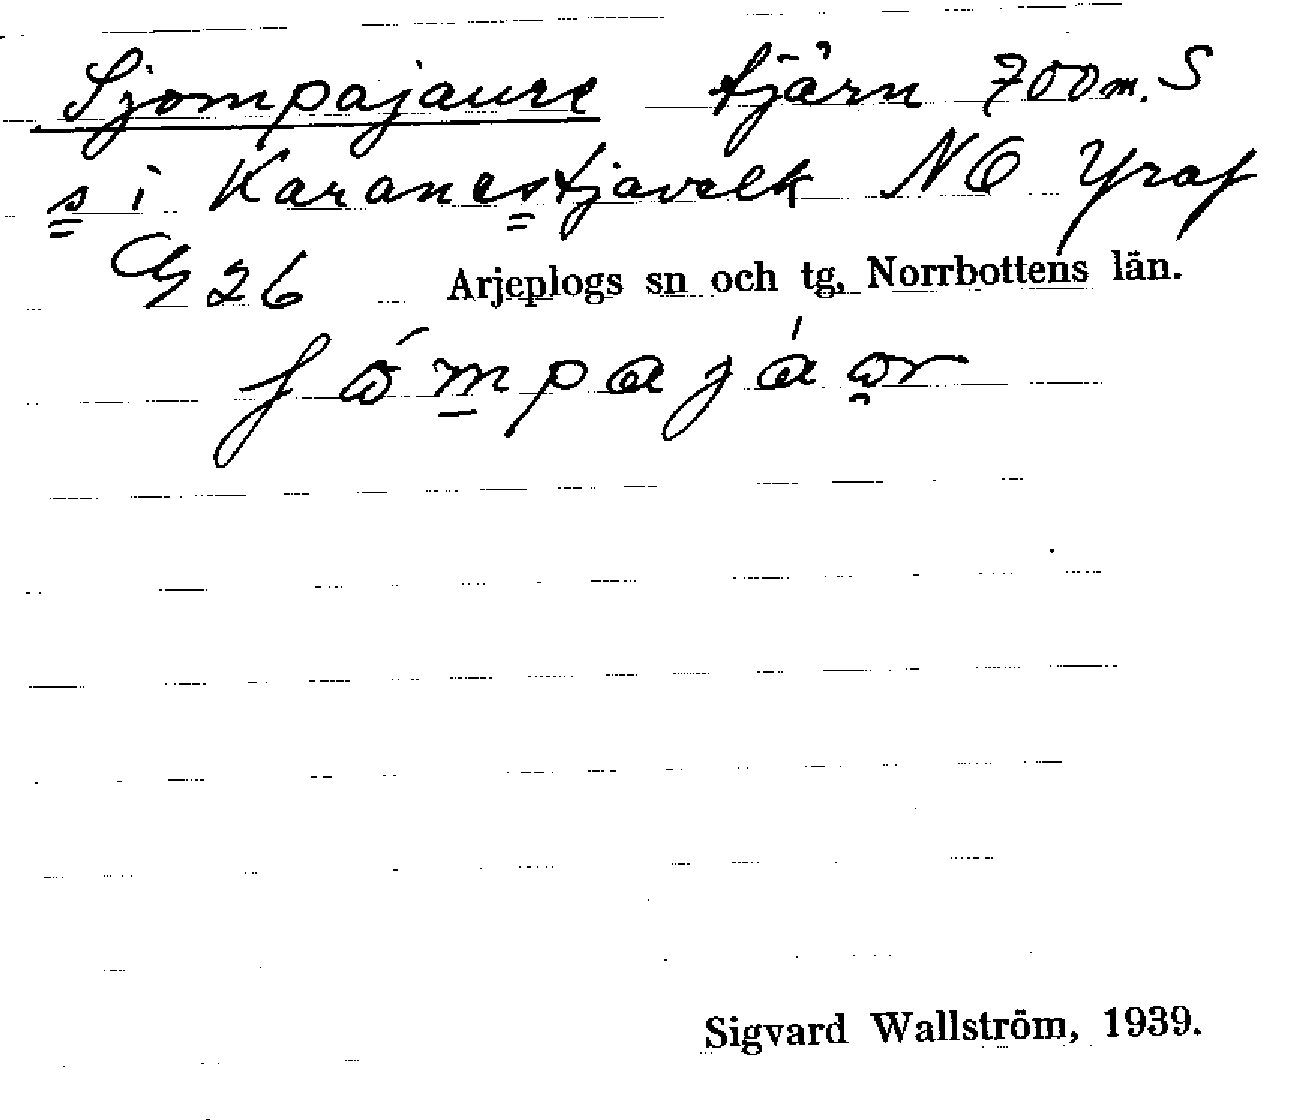 Sjompajaure tjärn 700 m. S
s i Karanestjavelk NO Yraf
G 26 Arjeplogs sn och tg, Norrbottens län.
ʃɷ́m̱pɑjɑ́ɷ̯r
Sigvard Wallström, 1939.